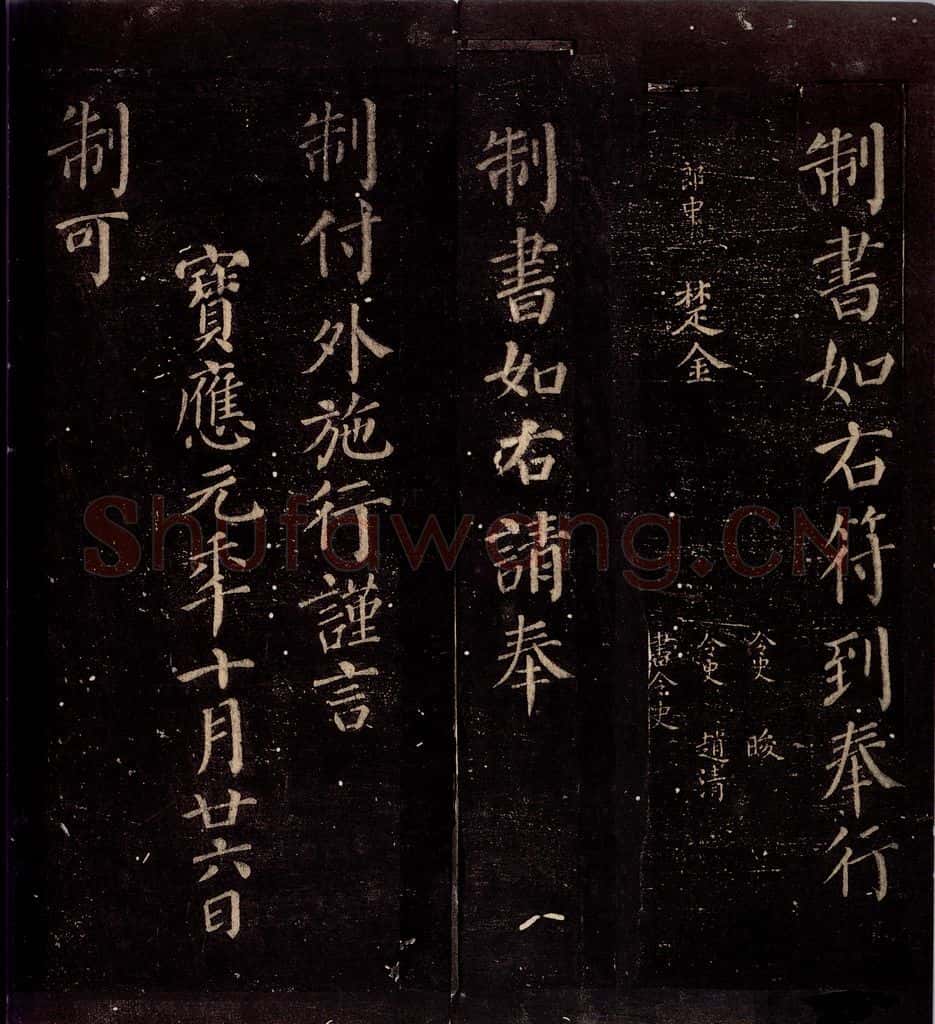 制書如右符到奉行
令史 晙
令史 趙清
郎中 楚金
書令史
制書如右請奉
制付外施行謹言
寶應元年十月廿六日
制可
Shufawang.CN